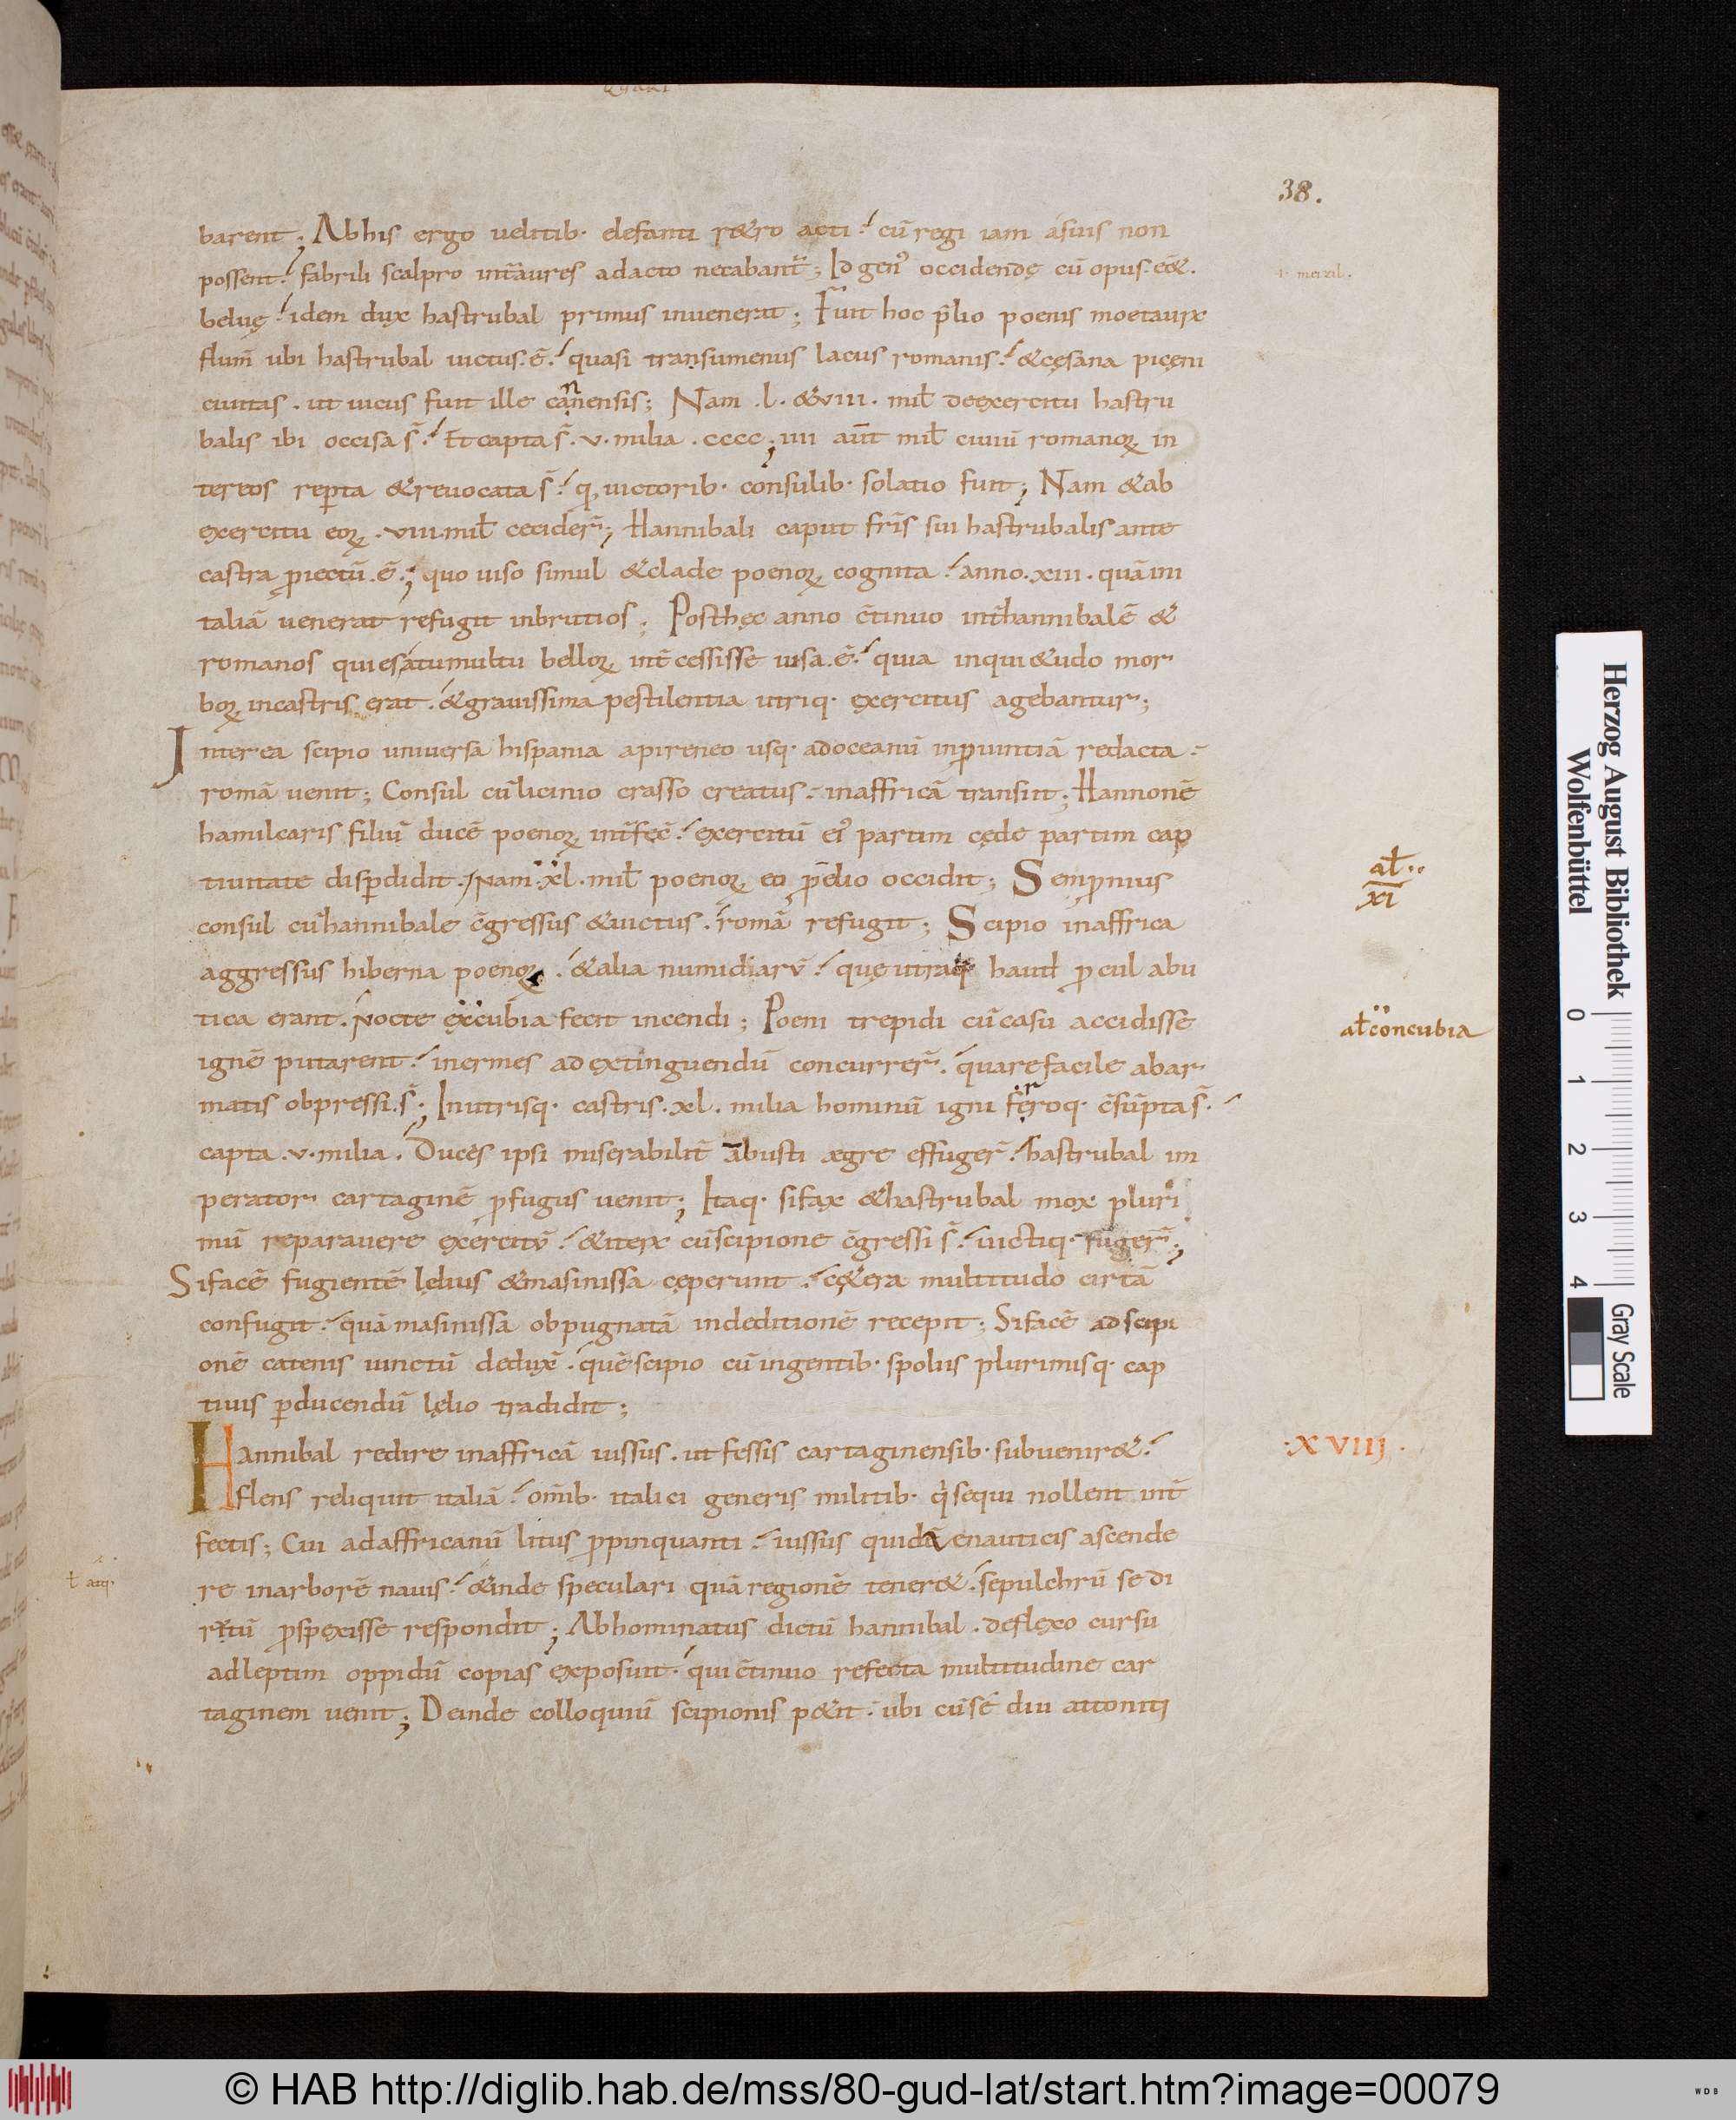 38.
barent; Abhis ergo uelitib· elefanti r&ro acti· cū regi iam asuis non
possent· fabrili scalpro int̄ aures adacto necabant̄; Id gen⁹ occidendę cū opus· e&.
belue· idem dux hastrubal primus inuenerat; Fuit hoc p̄lio poenis moetaurx
flum̄ ubi hastrubal uictus· ē· quasi transumenus lacus romanis· &cęsana piceni
ciuitas· ut uicus fuit ille cannensis; Nam ·l· &viii· mił deexercitu hastru
balis ibi occisa s̄· Et capta s̄· v· milia ·cccc; iiii aūt mił ciuiū romanoꝝ in
tereos rep̱ta &reuocata s̄· q, uictorib· consulib· solatio fuit; Nam &ab
exercitu eoꝝ ·viii· mił cecider̄; Hannibali caput fr̄is sui hastrubalis ante
castra ꝓiectū· ē·; quo uiso simul &clade poenoꝝ cognita· anno· xiii· quā ini
taliā uenerat refugit inbrutios; Posthęc anno c̄tinuo int̄hannibalē &
romanos quiesatumultu belloꝝ int̄cessisse uisa· ē· quia inqui&udo mor
boꝝ incastris erat· &grauissima pestilentia utriq· exercitus agebantur;
Interea scipio uniuersa hispania apireneo usq· adoceanū inꝓuintiā redacta·
romā uenit; Consul cū licinio crasso creatus· inaffricā transiit; Hannonē
hamilcaris filiū ducē poenoꝝ int̄fec̄· exercitū ei⁹ partim cęde partim cap
tiuitate disꝑdidit· Nam ·xl· mił poenoꝝ eo p̄elio occidit; Semꝓnius
ał
xi
consul cū hannibale c̄gressus &uictus· romā refugit; Scipio inaffrica
aggressus hiberna poenoꝝ· &alia numidiarū· quę utraq· haud ꝓcul abu
tica erant· Nocte excubia fecit incendi; Poeni trepidi cū casu accidisse
ałconcubia
ignē putarent· inermes ad extinguendū concurrer̄· quare facile abar
matis obpressi· s̄·; Inutrisq· castris· xl· milia hominū igni ferroq· c̄sūpta s̄·
capta ·v· milia· Duces ipsi miserabilit̄ ābusti ægre effuger̄· hastrubal im
perator cartaginē ꝓfugus uenit; Itaq· sifax &hastrubal mox pluri
mū reparauere exercitū· &iterx cū scipione c̄gressi s̄· uictiq· fuger̄;
Sifacē fugientē lęlius &masinissa cęperunt· c&era multitudo cirtā
confugit· quā masinissā obpugnatā indeditionē recepit; Sifacē adscipi
onē catenis uinctū deduxē· quē scipio cū ingentib· spoliis plurimisq· cap
tiuis ꝑducendū lęlio tradidit;
Hannibal redire inaffricā iussus· ut fessis cartaginensib· subuenir&·
·XVIIIJ·
flens reliquit italiā· omīb· italici generis militib· q̇ sequi nollent int̄
fectis; Cui adaffricanū litus ꝓpinquanti· iussus quidā enauticis ascende
re inarborē nauis· &inde speculari quā regionē tener&· sepulchrū se di
ł atq·
rutū ꝓspexisse respondit; Abhominatus dictū hannibal· deflexo cursu
adleptim oppidū copias exposuit· qui c̄tinuo refecta multitudine car
taginem uenit; Deinde colloquiū scipionis p&iit· ubi cū se diu attoniti
Herzog August Bibliothek
Wolfenbüttel
0 1 2 3 4
Gray Scale
© HAB http://diglib.hab.de/mss/80-gud-lat/start.htm?image=00079
WDB